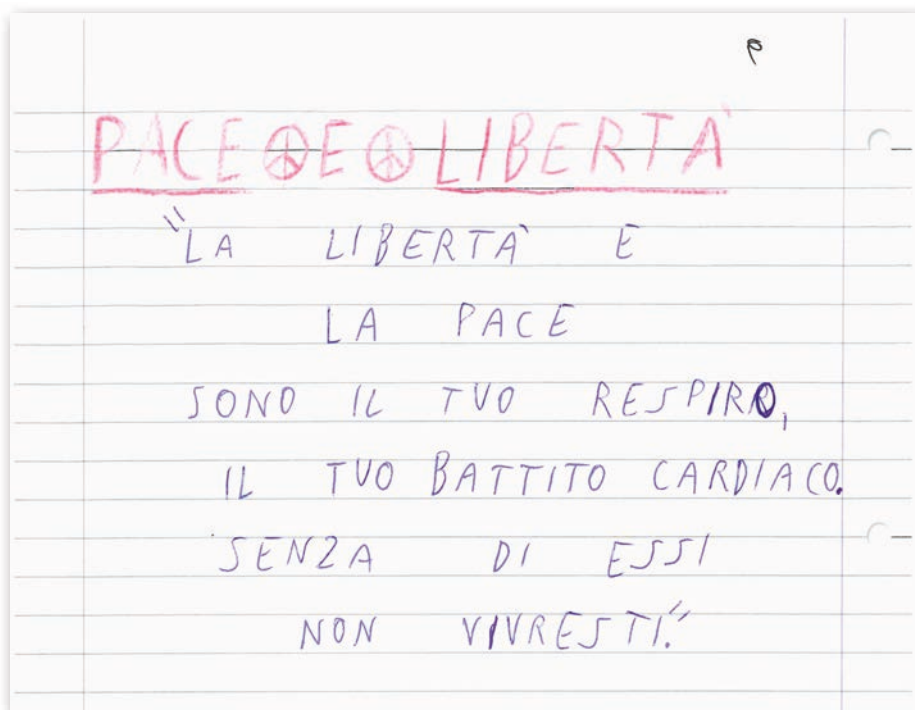 PACE ☮ E ☮ LIBERTÀ
"LA LIBERTÀ E
LA PACE
SONO IL TUO RESPIRO,
IL TUO BATTITO CARDIACO.
SENZA DI ESSI
NON VIVRESTI."